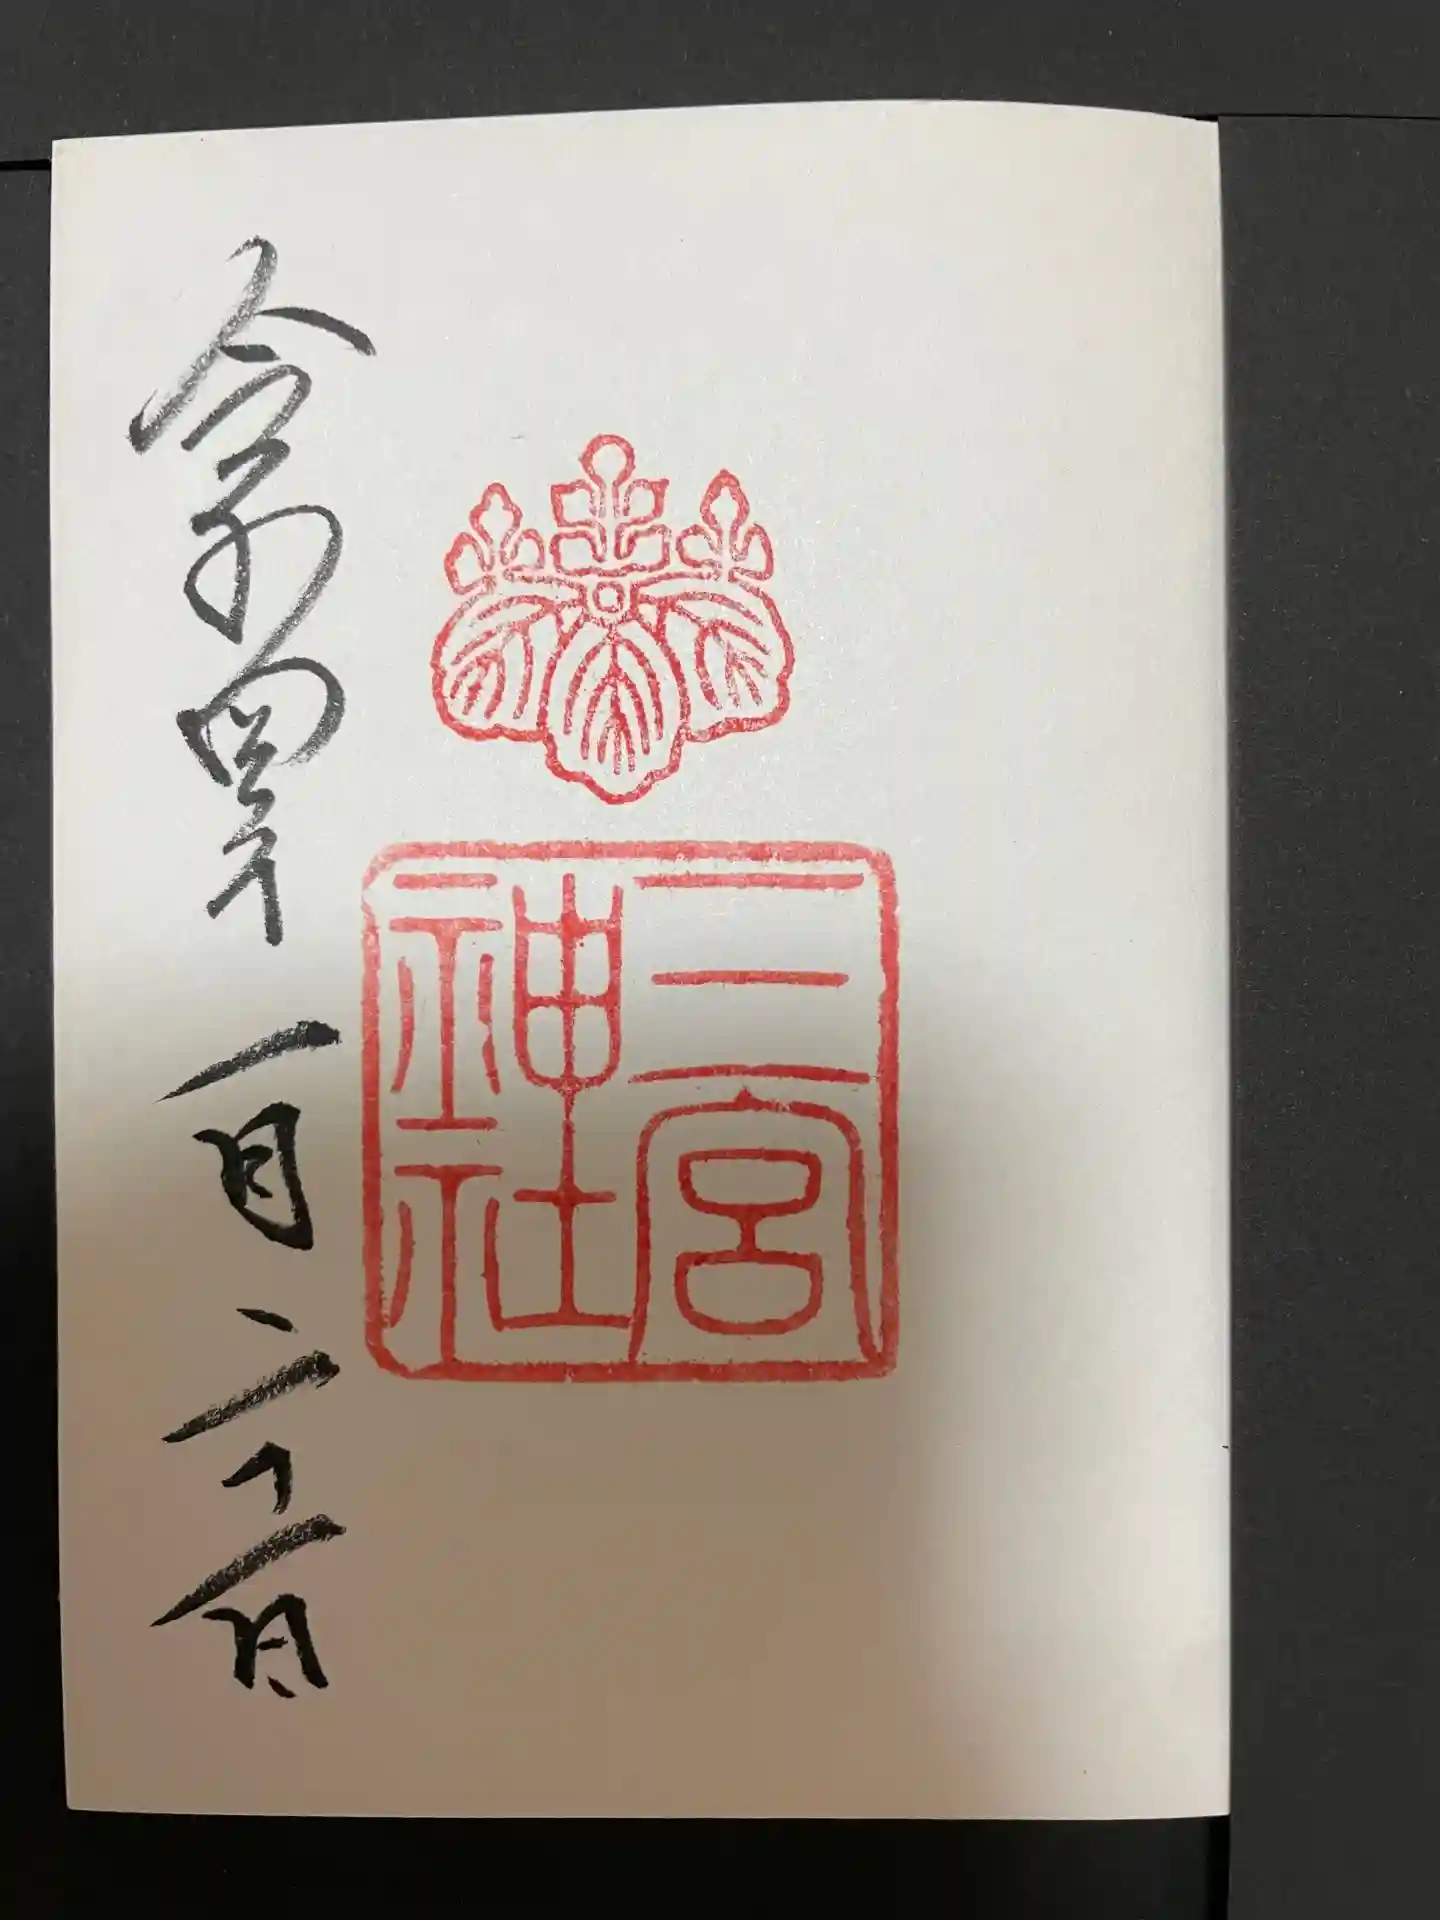 三宮
神社
令和四年一月二十一日